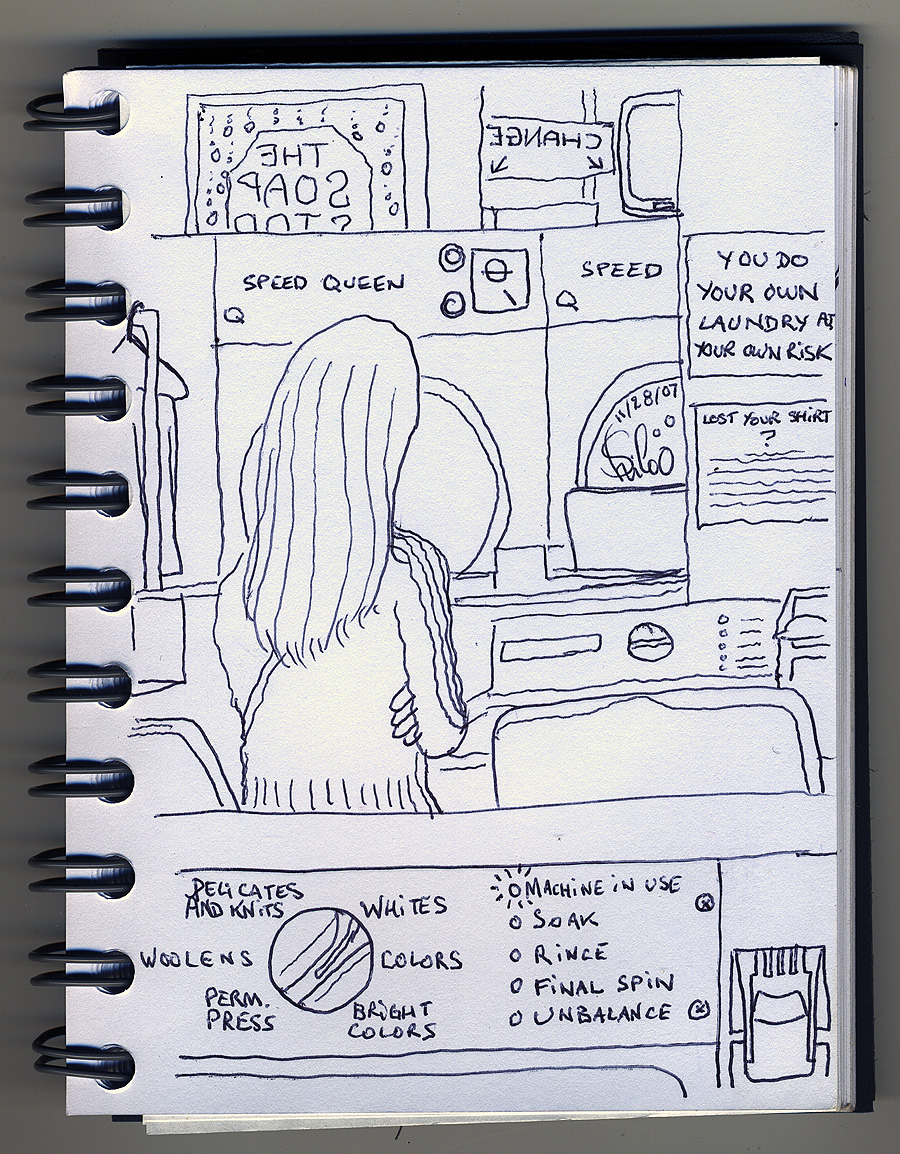 THE
SOAP
STOP
CHANGE
SPEED QUEEN
SPEED
YOU DO
YOUR OWN
LAUNDRY AT
YOUR OWN RISK
11/28/07
LOST YOUR SHIRT
?
DELICATES
AND KNITS
WHITES
WOOLENS
COLORS
PERM.
PRESS
BRIGHT
COLORS
MACHINE IN USE
SOAK
RINCE
FINAL SPIN
UNBALANCE